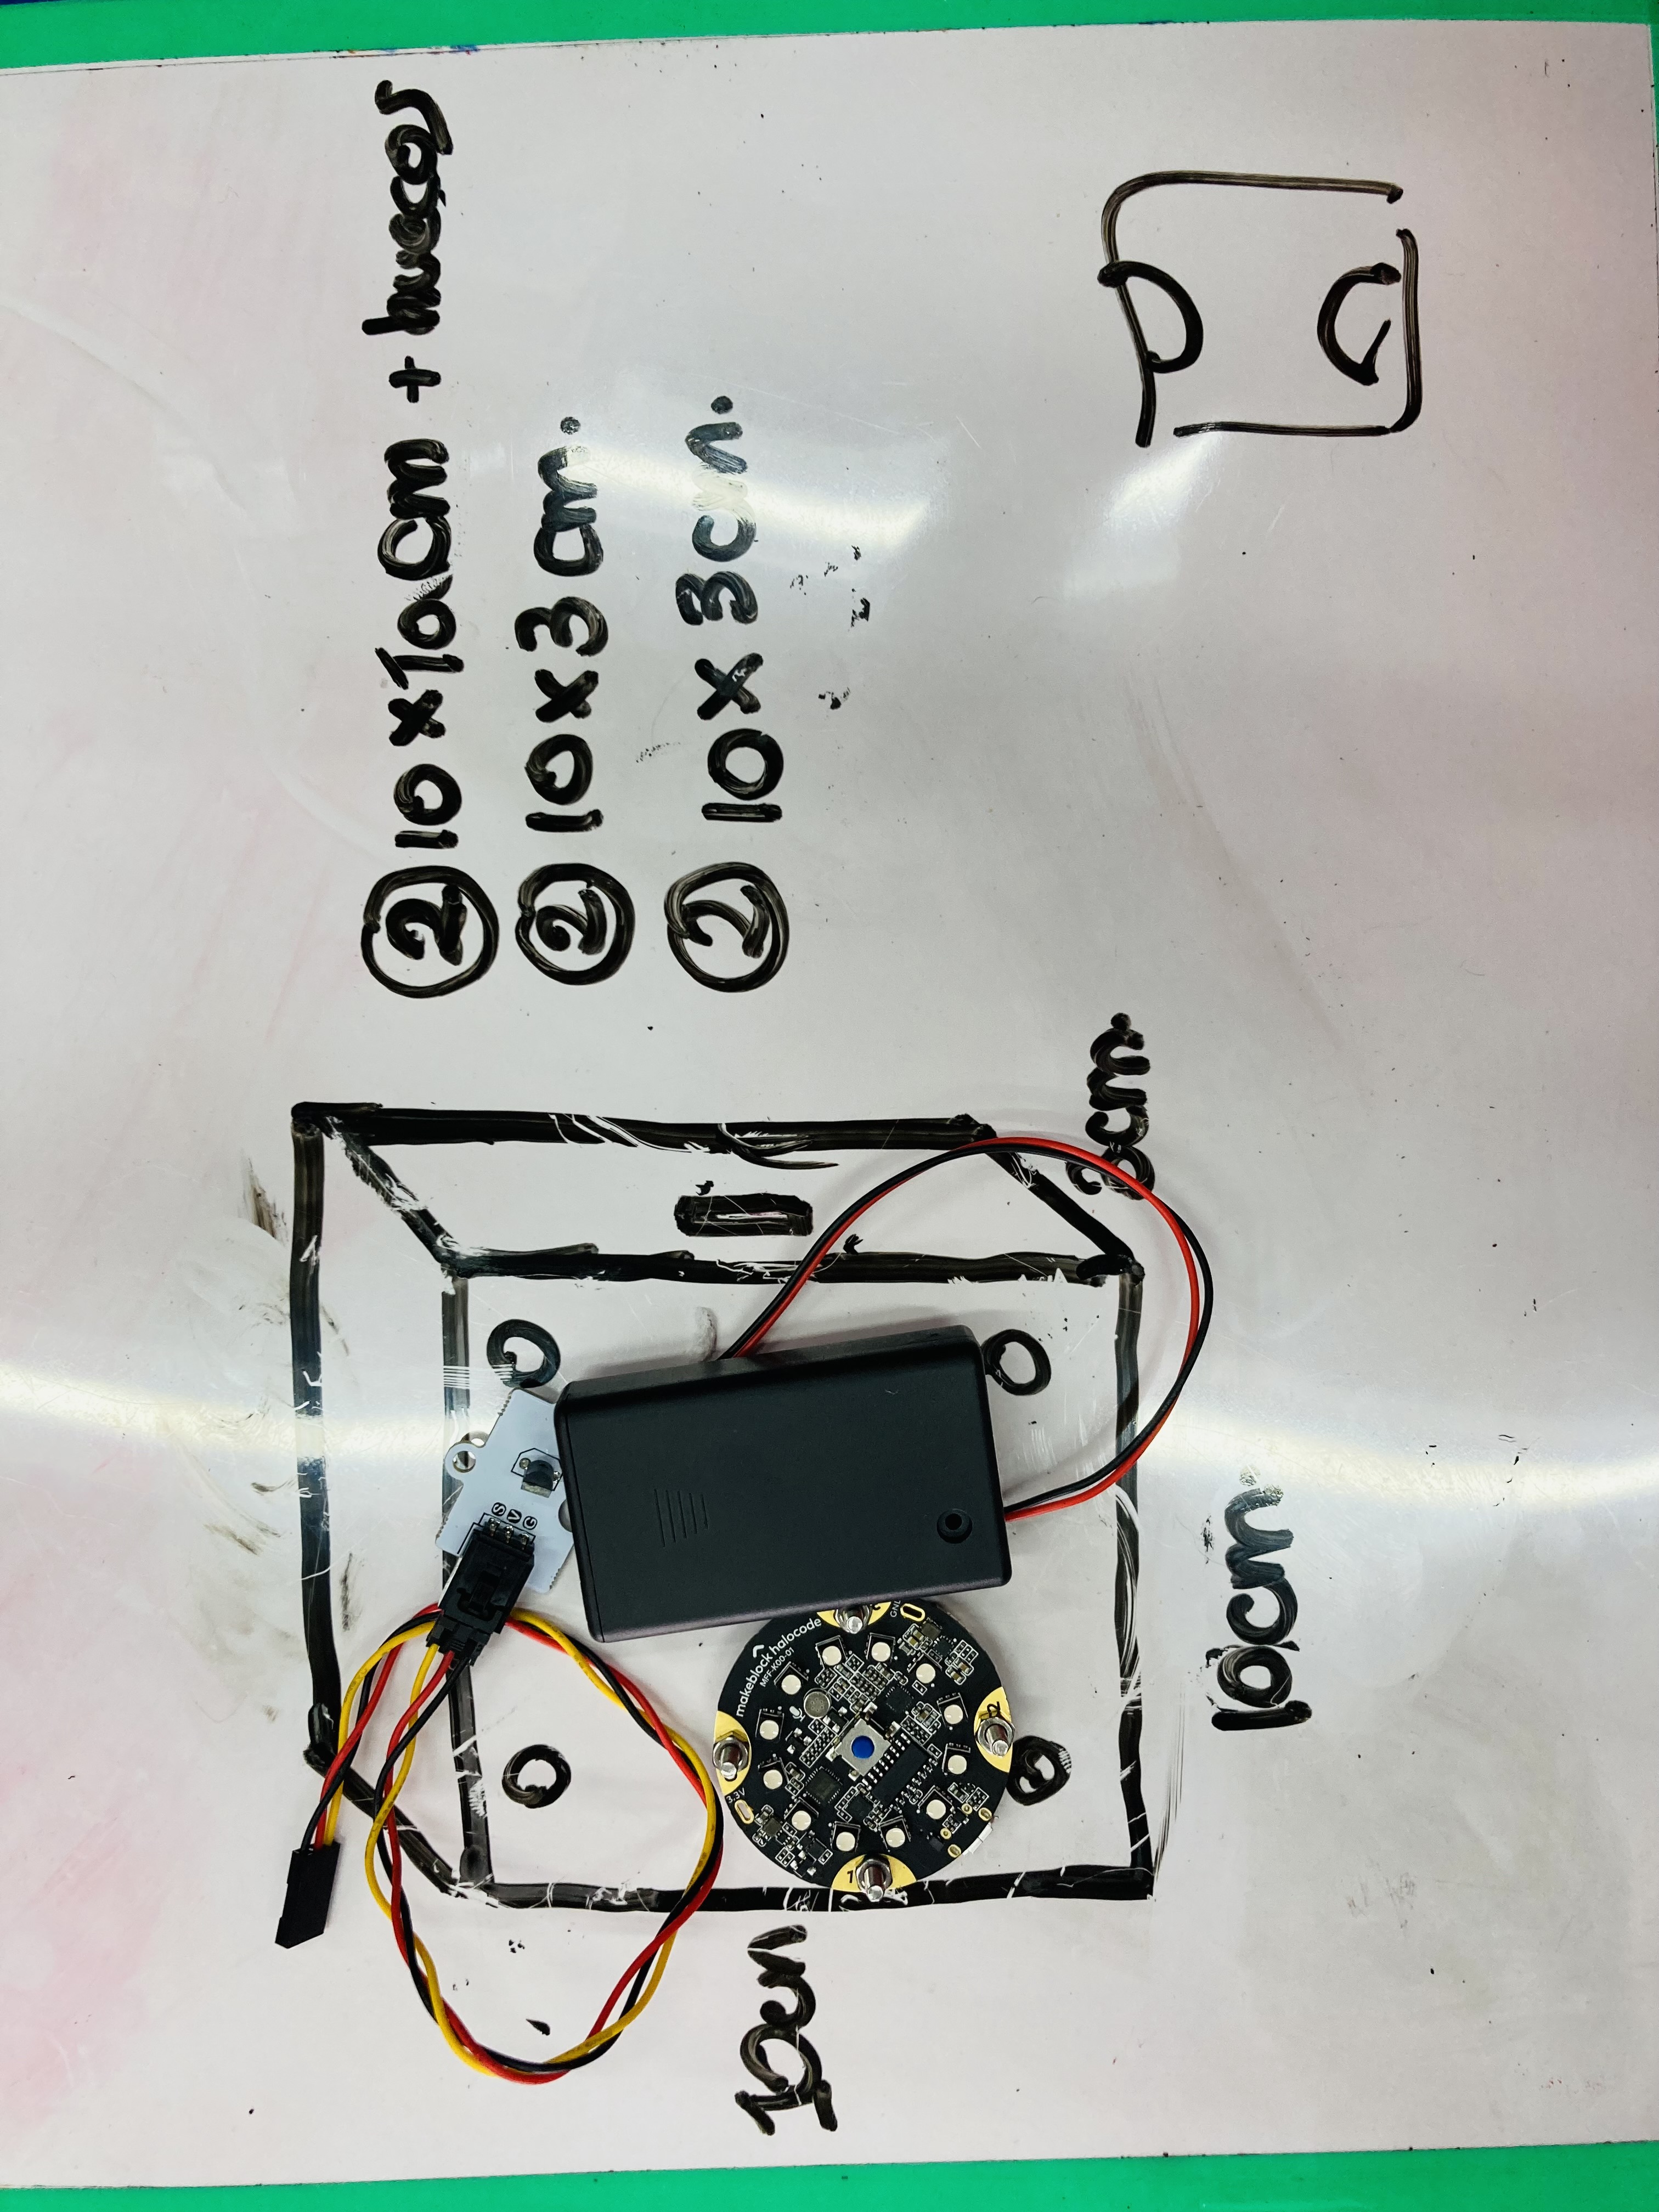 ② 10 x 10 cm + huecos
② 10 x 3 cm.
② 10 x 3 cm.
3cm.
10cm.
10cm
makeblock halocode
MFF-K00-01
3.3V
GND
1
2
S
V
G